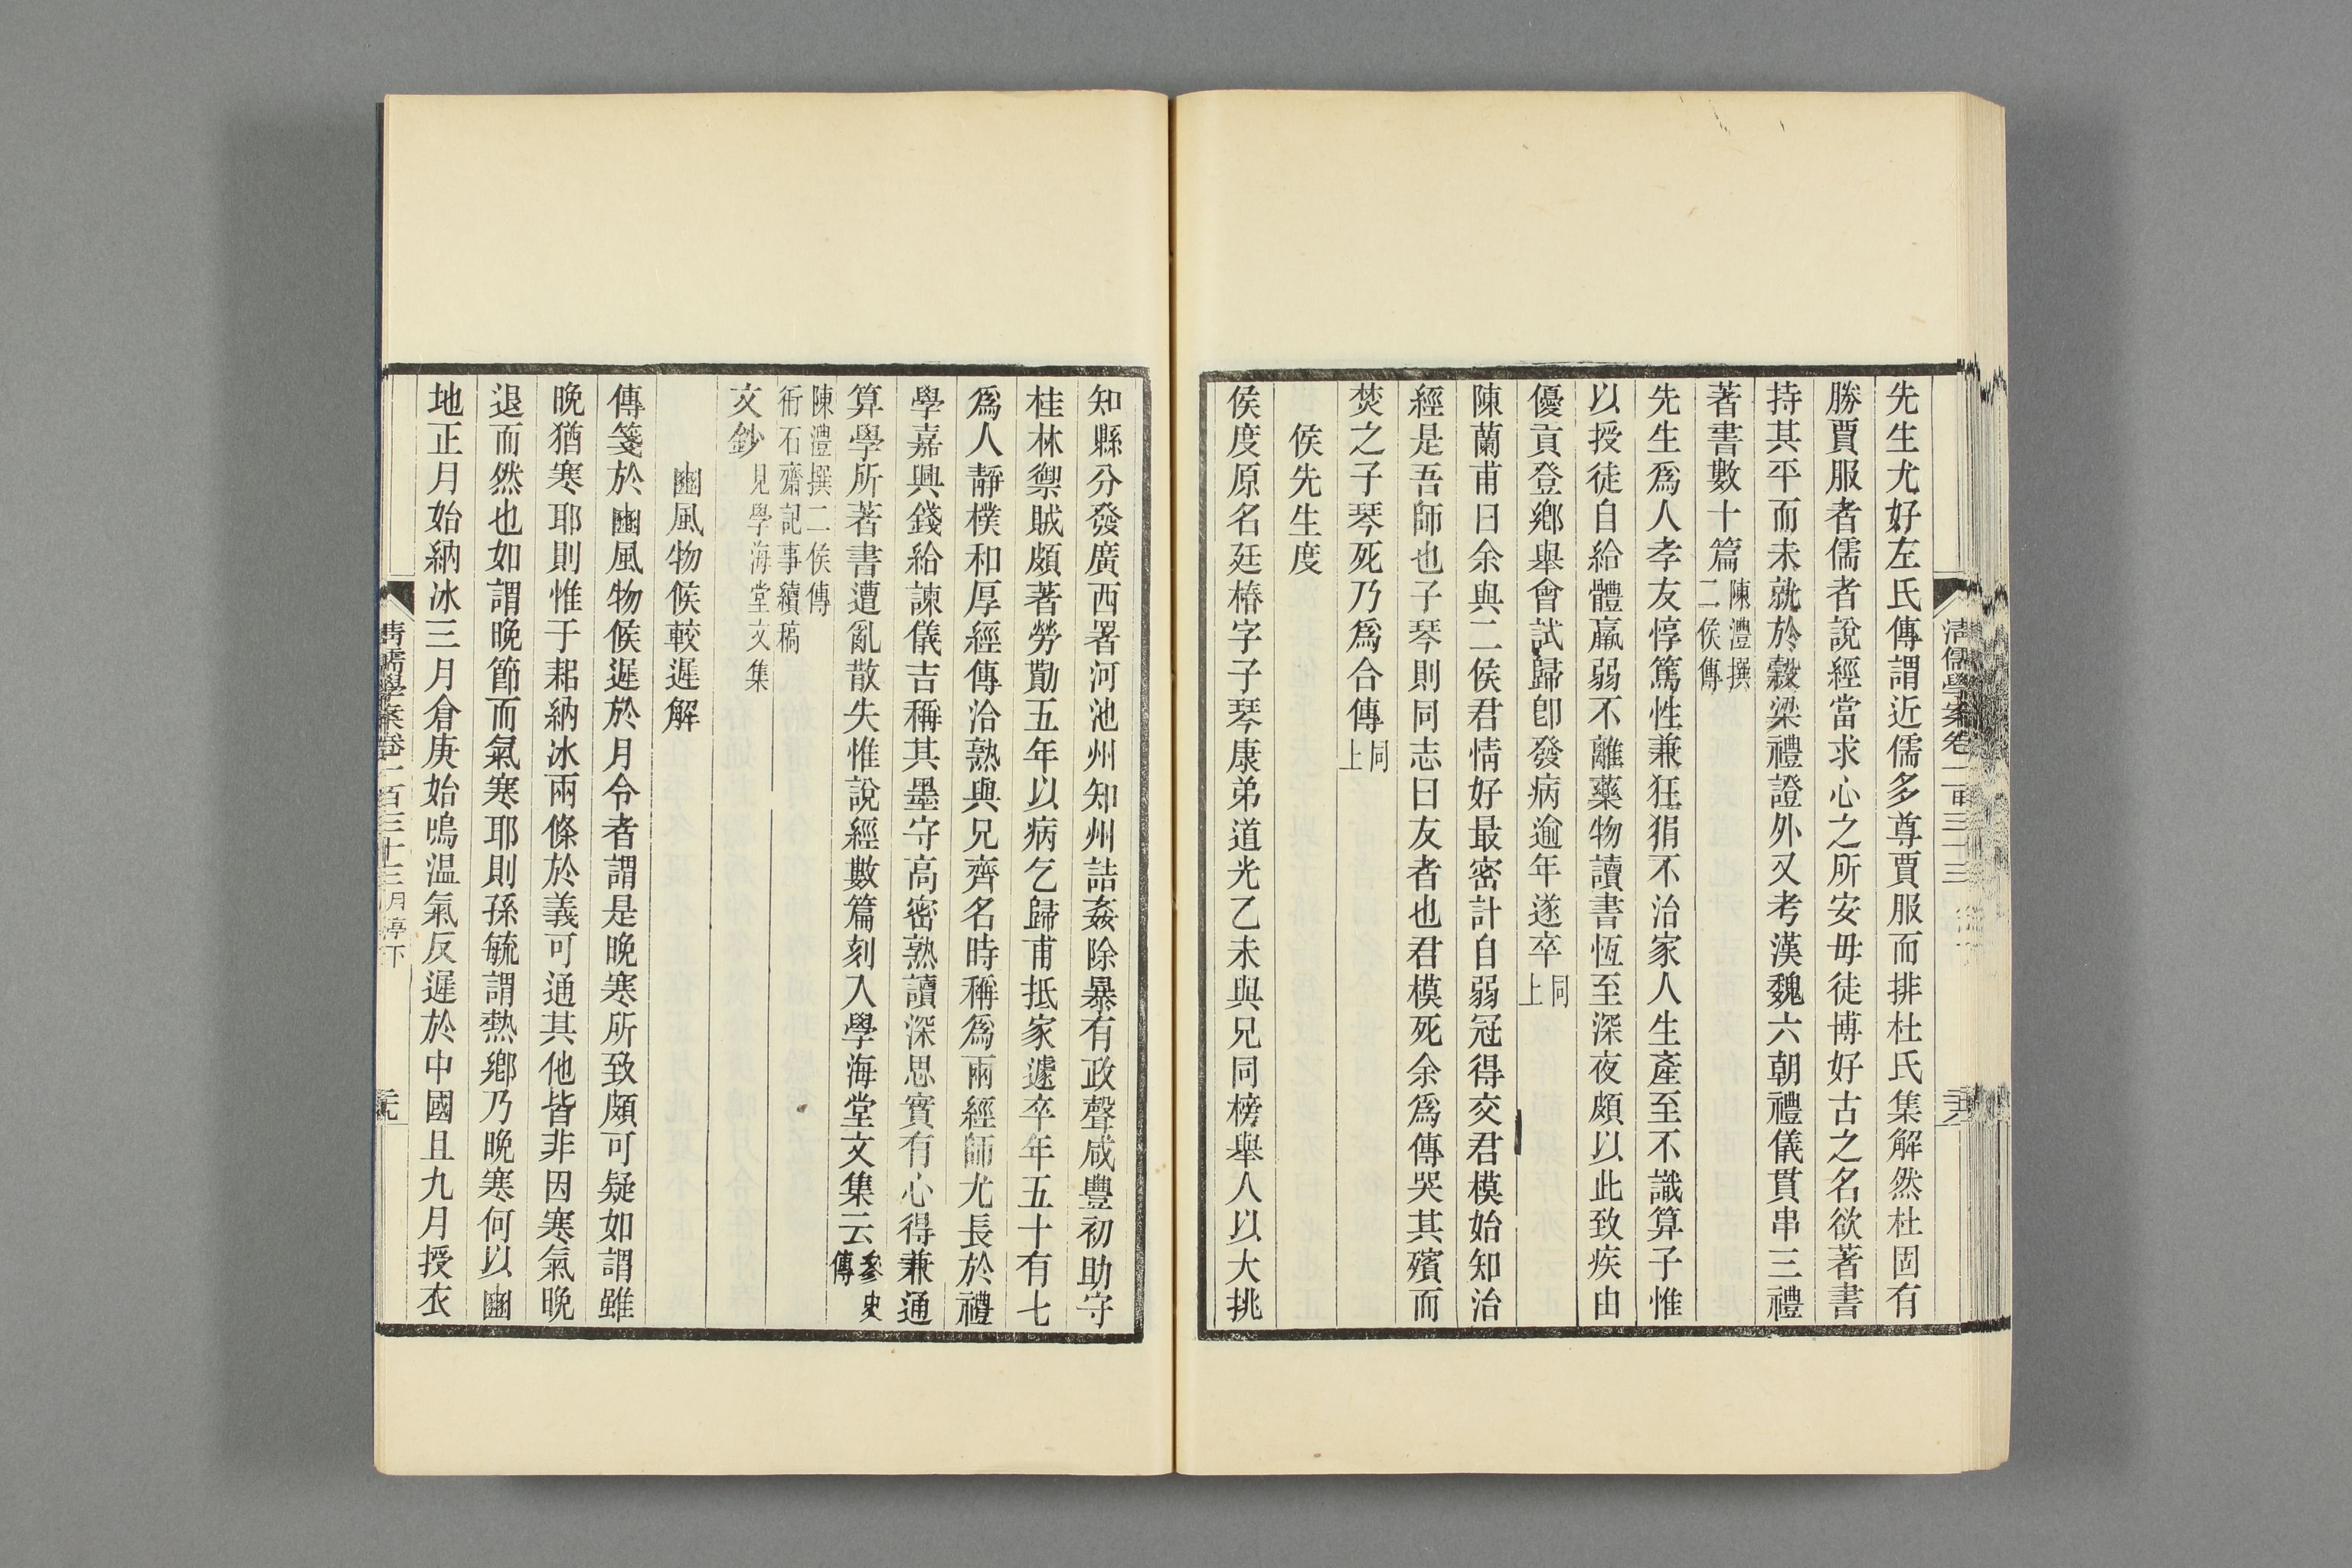 先生尤好左氏傳謂近儒多尊賈服而排杜氏集解然杜固有
勝賈服者儒者說經當求心之所安毋徒博好古之名欲著書
持其平而未就於穀梁禮證外又考漢魏六朝禮儀貫串三禮
著書數十篇陳澧撰二侯傳
先生爲人孝友惇篤性兼狂狷不治家人生產至不識算子惟
以授徒自給體羸弱不離藥物讀書恆至深夜頗以此致疾由
優貢登鄉舉會試歸卽發病逾年遂卒同上
陳蘭甫曰余與二侯君情好最密計自弱冠得交君模始知治
經是吾師也子琴則同志曰友者也君模死余爲傳哭其殯而
焚之子琴死乃爲合傳同上
侯先生度
侯度原名廷椿字子琴康弟道光乙未與兄同榜舉人以大挑
清儒學案卷一百三十三
知縣分發廣西署河池州知州詰姦除暴有政聲咸豐初助守
桂林禦賊頗著勞勩五年以病乞歸甫抵家遽卒年五十有七
爲人靜樸和厚經傳洽熟與兄齊名時稱爲兩經師尤長於禮
學嘉興錢給諫儀吉稱其墨守高密熟讀深思實有心得兼通
算學所著書遭亂散失惟說經數篇刻入學海堂文集云參史傳
陳澧撰二侯傳
衎石齋記事續稿
文鈔見學海堂文集
豳風物候較遲解
傳箋於豳風物候遲於月令者謂是晚寒所致頗可疑如謂雖
晚猶寒耶則惟于耜納冰兩條於義可通其他皆非因寒氣晚
退而然也如謂晚節而氣寒耶則孫毓謂熱鄉乃晚寒何以豳
地正月始納冰三月倉庚始鳴溫氣反遲於中國且九月授衣
清儒學案卷一百三十三